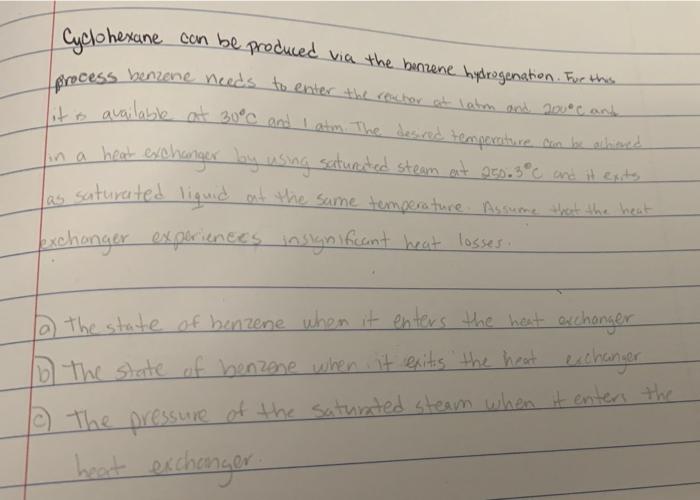 Cyclohexane can be produced via the benzene hydrogenation. For this
process benzene needs to enter the reactor at 1atm and 200°C and
it is available at 30°C and 1 atm. The desired temperature can be achieved
in a heat exchanger by using saturated steam at 250.3°C and it exits
as saturated liquid at the same temperature. Assume that the heat
exchanger experiences insignificant heat losses.
a) The state of benzene when it enters the heat exchanger
b) The state of benzene when it exits the heat exchanger
c) The pressure of the saturated steam when it enters the
heat exchanger.